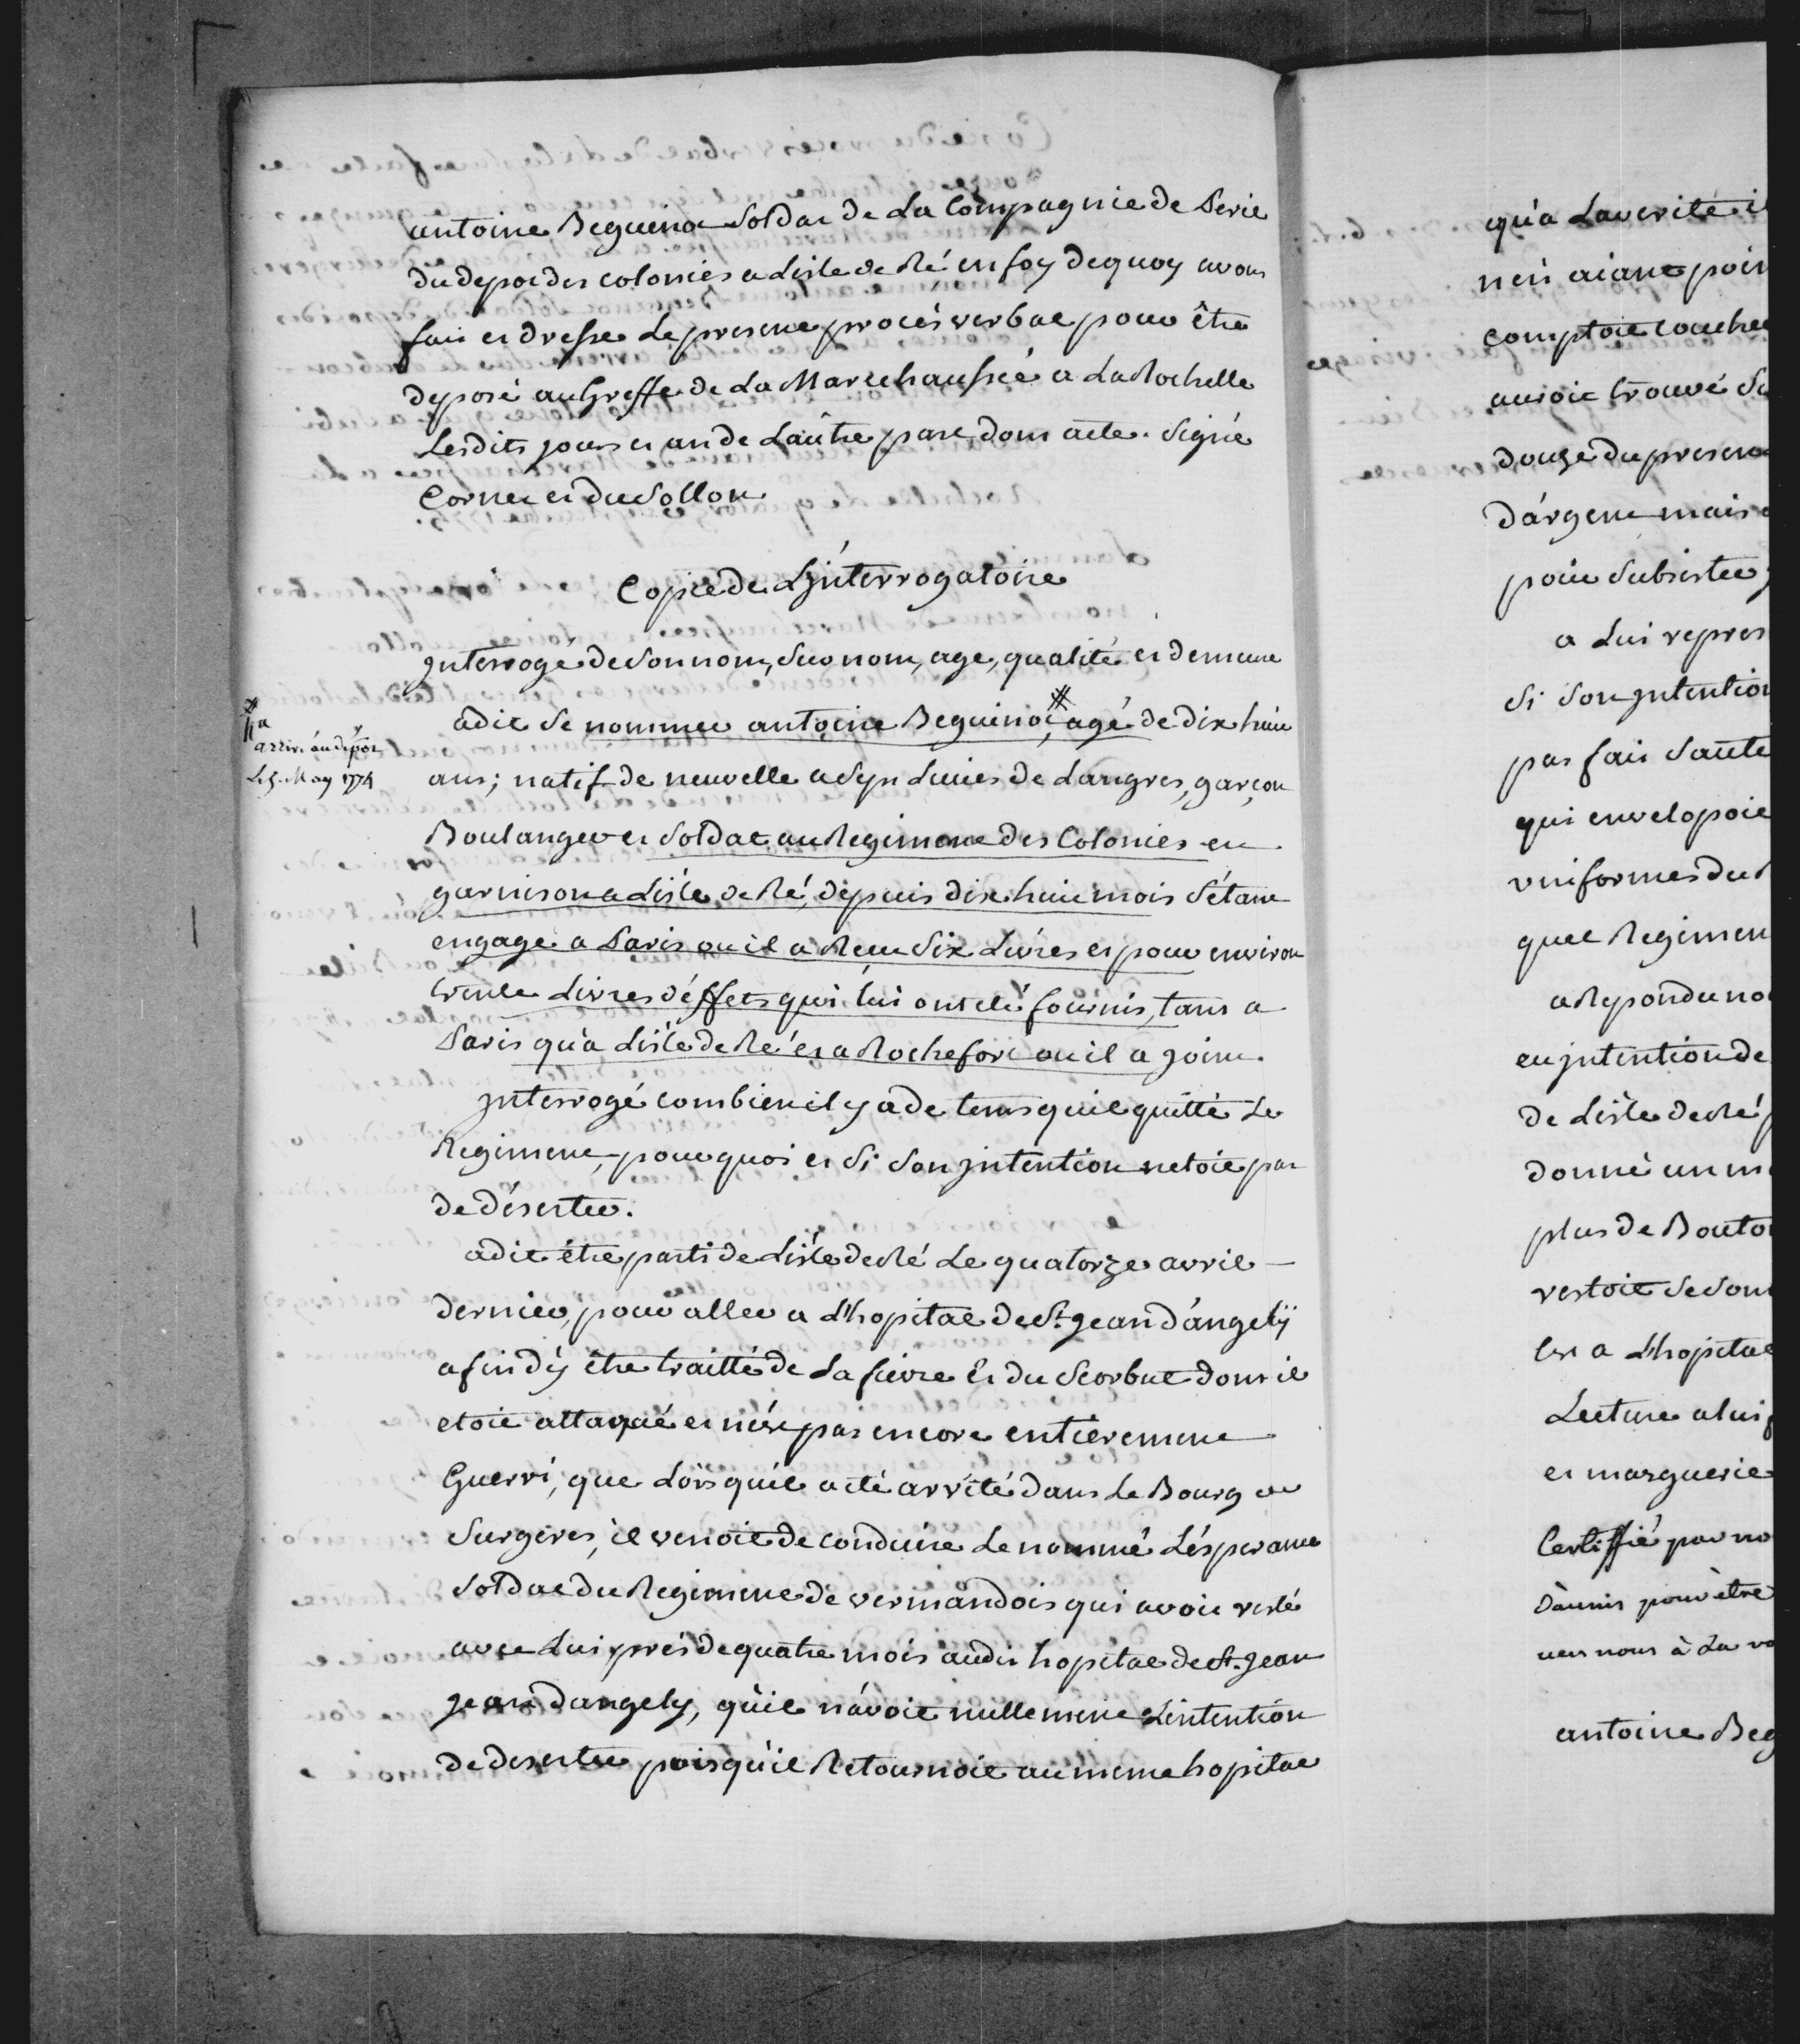 antoine Beguinot Soldat de La Compagnie de Perie
du depot des colonies a Lisle de Ré en foy dequoy avons
fait et dressé Le present procès verbal pour être
deposé au Greffe de La Maréchaussée a La Rochelle
Lesdits jours et an de Lautre part dont acte. Signé
Cornet et du Sollon
Copie de L'jnterrogatoire
jnterrogé de Son nom, Surnom, age, qualité et demeure
a dit Se nommer antoine Beguinot, agé de dix huit
ans; natif de neuvelle a Syn Luies de Langres, garçon
Boulanger et Soldat au Regiment des Colonies en
garnison a Lisle de Ré, depuis dix huit mois S'étant
engagé a Paris ou il a Recu Six Livres et pour environ
trente Livres d'éffets qui lui ont été fournis, tant a
Paris qu'a Lisle de Ré et a Rochefort ou il a joint.
jnterrogé combien il y a de tems qu'il quitté Le
Regiment, pourquoi et Si Son jntention netoit pas
de déserter.
a dit être parti de Lisle de Ré Le quatorze avril
dernier, pour aller a L'hopital de St. Jean d'angelÿ
afin d'y être traitté de La fievre et du Scorbut dont il
etoit attaqué et n'ést pas encore entierement
Guerri, que Lorsqu'il a été arrêté dans Le Bourg de
Surgeres, il venoit de conduire Le nommé L'ésperance
Soldat du Regiment de vermandois qui avoit resté
avec Lui près de quatre mois audit hopital de St. Jean
Jean Dangely, qu'il n'avoit nullement L'intention
de deserter puisqu'il Retournoit au meme hopital
arrivé au dépôt
Le 5. May 1774
qu'a La verité i
n'en aiant poin
comptoit couche
auroit trouvé S
douze du present
d'argent mais
pour Subsister
a Lui repres
Si Son jntention
pas fait Saute
qui envelopoie
uniformes du
quel Regimen
a Repondu no
eu jntention de
de Lisle de Ré
donné un m
plus de Bouto
restoit de Son
ler a L'hopital
Lecture a lui
et marguerie
Certiffié par no
d'aunis pour être
antoine Beg